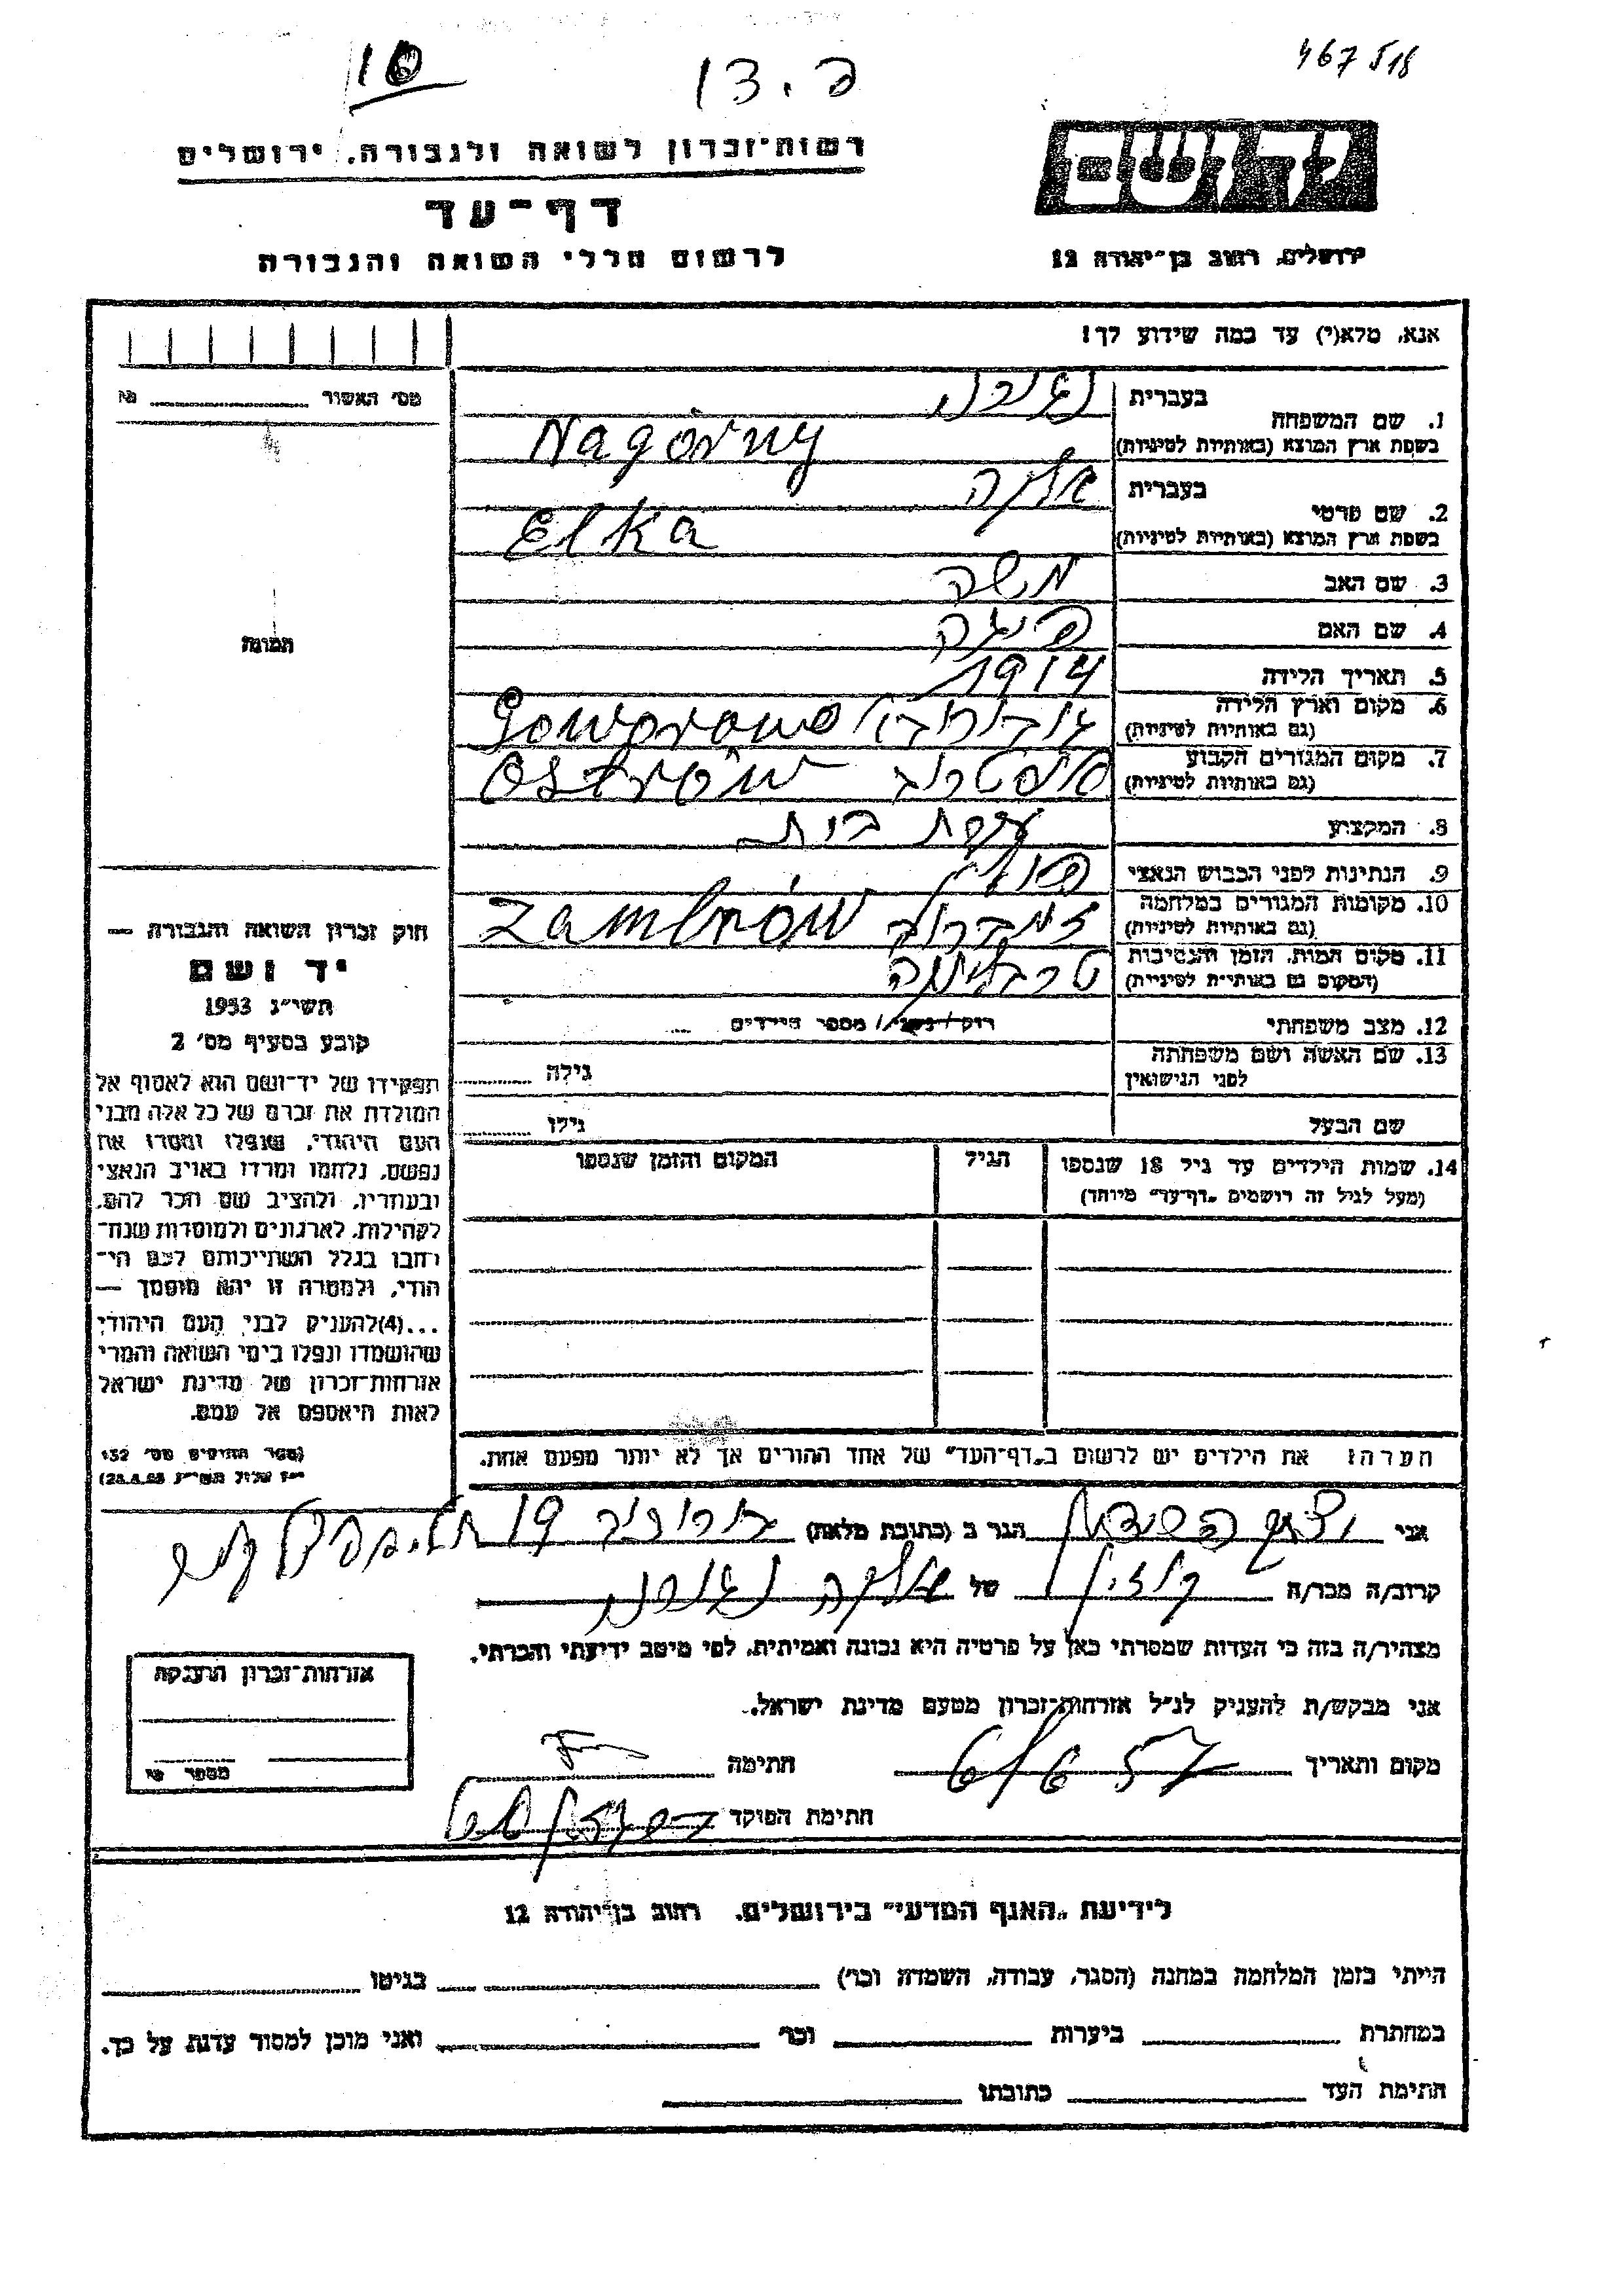 467518
פ.צ1
10
רשות־זכרון לשואה ולגבורה, ירושלים
דף־עד
לרשום חללי השואה והגבורה
ירושלים, רחוב בן־יהודה 12
אנא, מלא(י) עד כמה שידוע לך!
מס׳ האשור
1. שם המשפחה
בעברית
בשפת ארץ המוצא (באותיות לטיניות) Nagórny
2. שם פרטי
בעברית אלקה
בשפת ארץ המוצא (באותיות לטיניות) Elka
3. שם האב משה
4. שם האם
5. תאריך הלידה 1914
6. מקום וארץ הלידה
(גם באותיות לטיניות) גוברובו Goworowo
7. מקום המגורים הקבוע
(גם באותיות לטיניות) אוסטרוב Ostrów
8. המקצוע עקרת בית
9. הנתינות לפני הכבוש הנאצי פולין
10. מקומות המגורים במלחמה
(גם באותיות לטיניות) זמברוב Zambrów
11. מקום המות, הזמן והנסיבות
(המקום גם באותיות לטיניות) טרבלינקה
12. מצב משפחתי רוק/נשוי/מספר הילדים
13. שם האשה ושם משפחתה
לפני הנישואין גילה
שם הבעל גילו
14. שמות הילדים עד גיל 18 שנספו הגיל המקום והזמן שנספו
(מעל לגיל זה רושמים „דף־עד” מיוחד)
הערה: את הילדים יש לרשום ב„דף־העד” של אחד ההורים אך לא יותר מפעם אחת.
תמונה
חוק זכרון השואה והגבורה —
יד ושם
תשי״ג 1953
קובע בסעיף מס׳ 2
תפקידו של יד־ושם הוא לאסוף אל
המולדת את זכרם של כל אלה מבני
העם היהודי, שנפלו ומסרו את
נפשם, נלחמו ומרדו באויב הנאצי
ובעוזריו, ולהציב שם וזכר להם,
לקהילות, לארגונים ולמוסדות שנח־
רבו בגלל השתייכותם לעם הי־
הודי, ולמטרה זו יהא מוסמך —
...(4)להעניק לבני העם היהודי
שהושמדו ונפלו בימי השואה והמרי
אזרחות־זכרון של מדינת ישראל
לאות היאספם אל עמם.
(ספר החוקים מס׳ 132
י״ז אלול תשי״ג 28.8.53)
אני הגר ב (כתובת מלאה) 19
קרוב/ה מכר/ה של אלקה
מצהיר/ה בזה כי העדות שמסרתי כאן על פרטיה היא נכונה ואמיתית, לפי מיטב ידיעתי והכרתי.
אני מבקש/ת להעניק לנ״ל אזרחות־זכרון מטעם מדינת ישראל.
מקום ותאריך 6/6 57 חתימה
חתימת הפוקד
אזרחות־זכרון הוענקה
מספר
לידיעת „האגף המדעי” בירושלים, רחוב בן־יהודה 12
הייתי בזמן המלחמה במחנה (הסגר, עבודה, השמדה וכו׳) בגיטו
במחתרת ביערות וכו׳ ואני מוכן למסור עדות על כך.
חתימת העד כתובתו